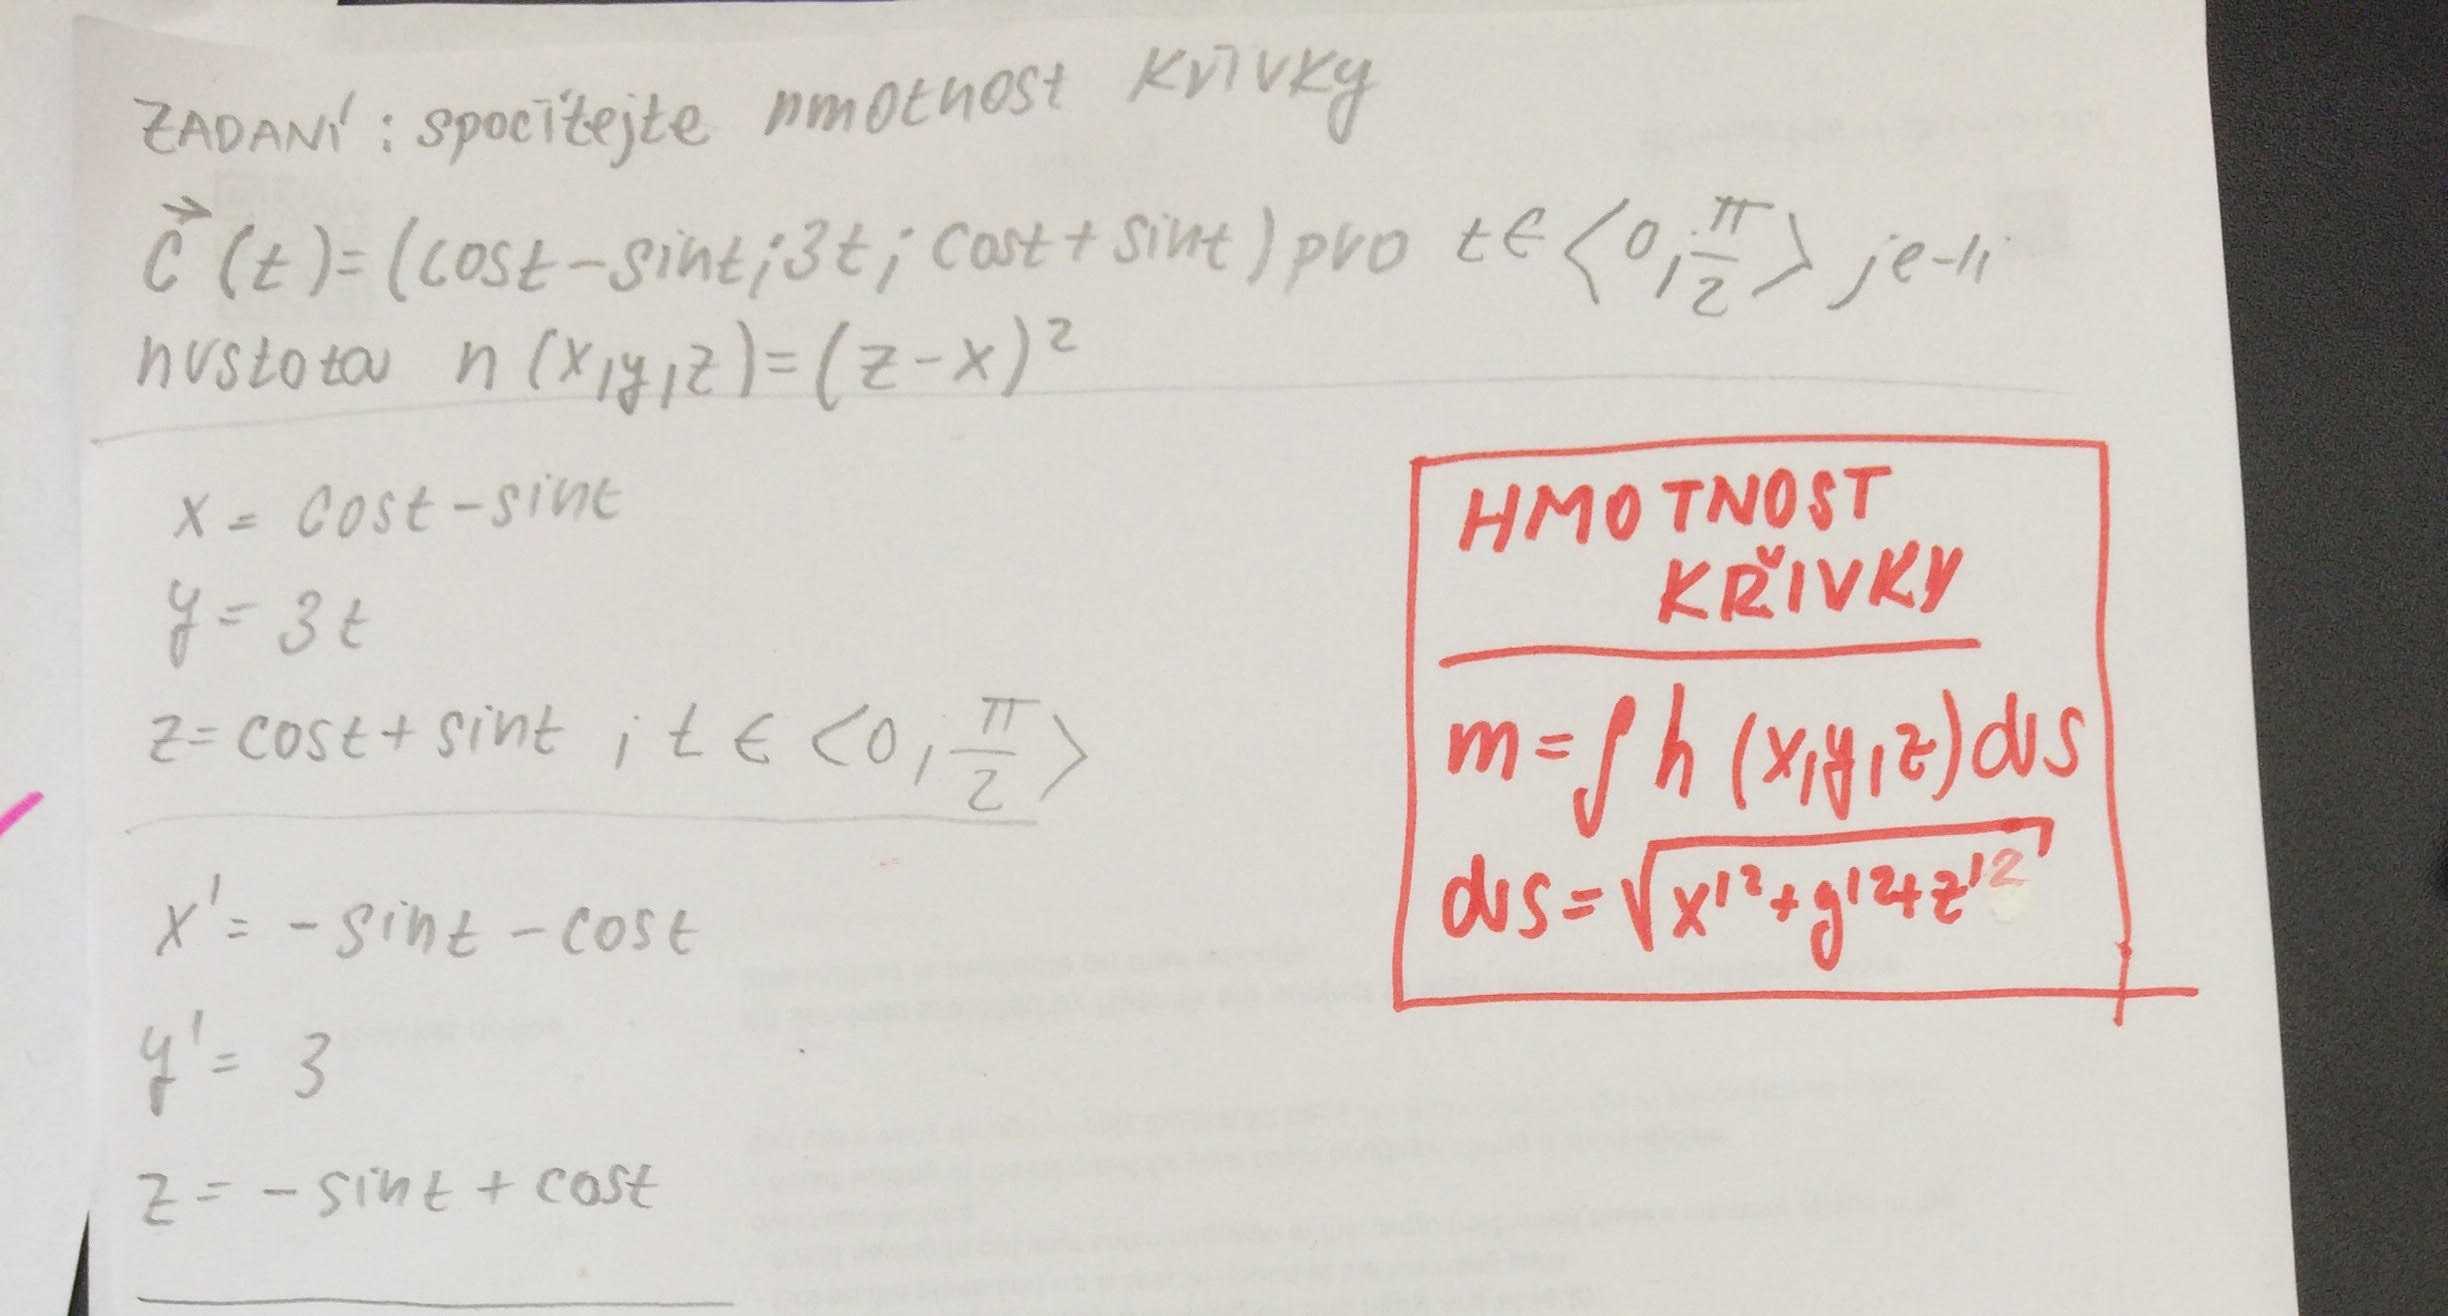 ZADANÍ: spočítejte hmotnost křivky
c⃗ (t)=(cost-sint;3t; cost+sint) pro t∈⟨0,π/2⟩ je-li
hustota h (x,y,z)=(z-x)²
x = cost-sint
y = 3t
z=cost+sint ; t∈<0,π/2>
x'= -sint-cost
y'= 3
z=-sint+cost
HMOTNOST
KŘIVKY
m=∫h (x,y,z)ds
ds=√x'²+y'²+z'²